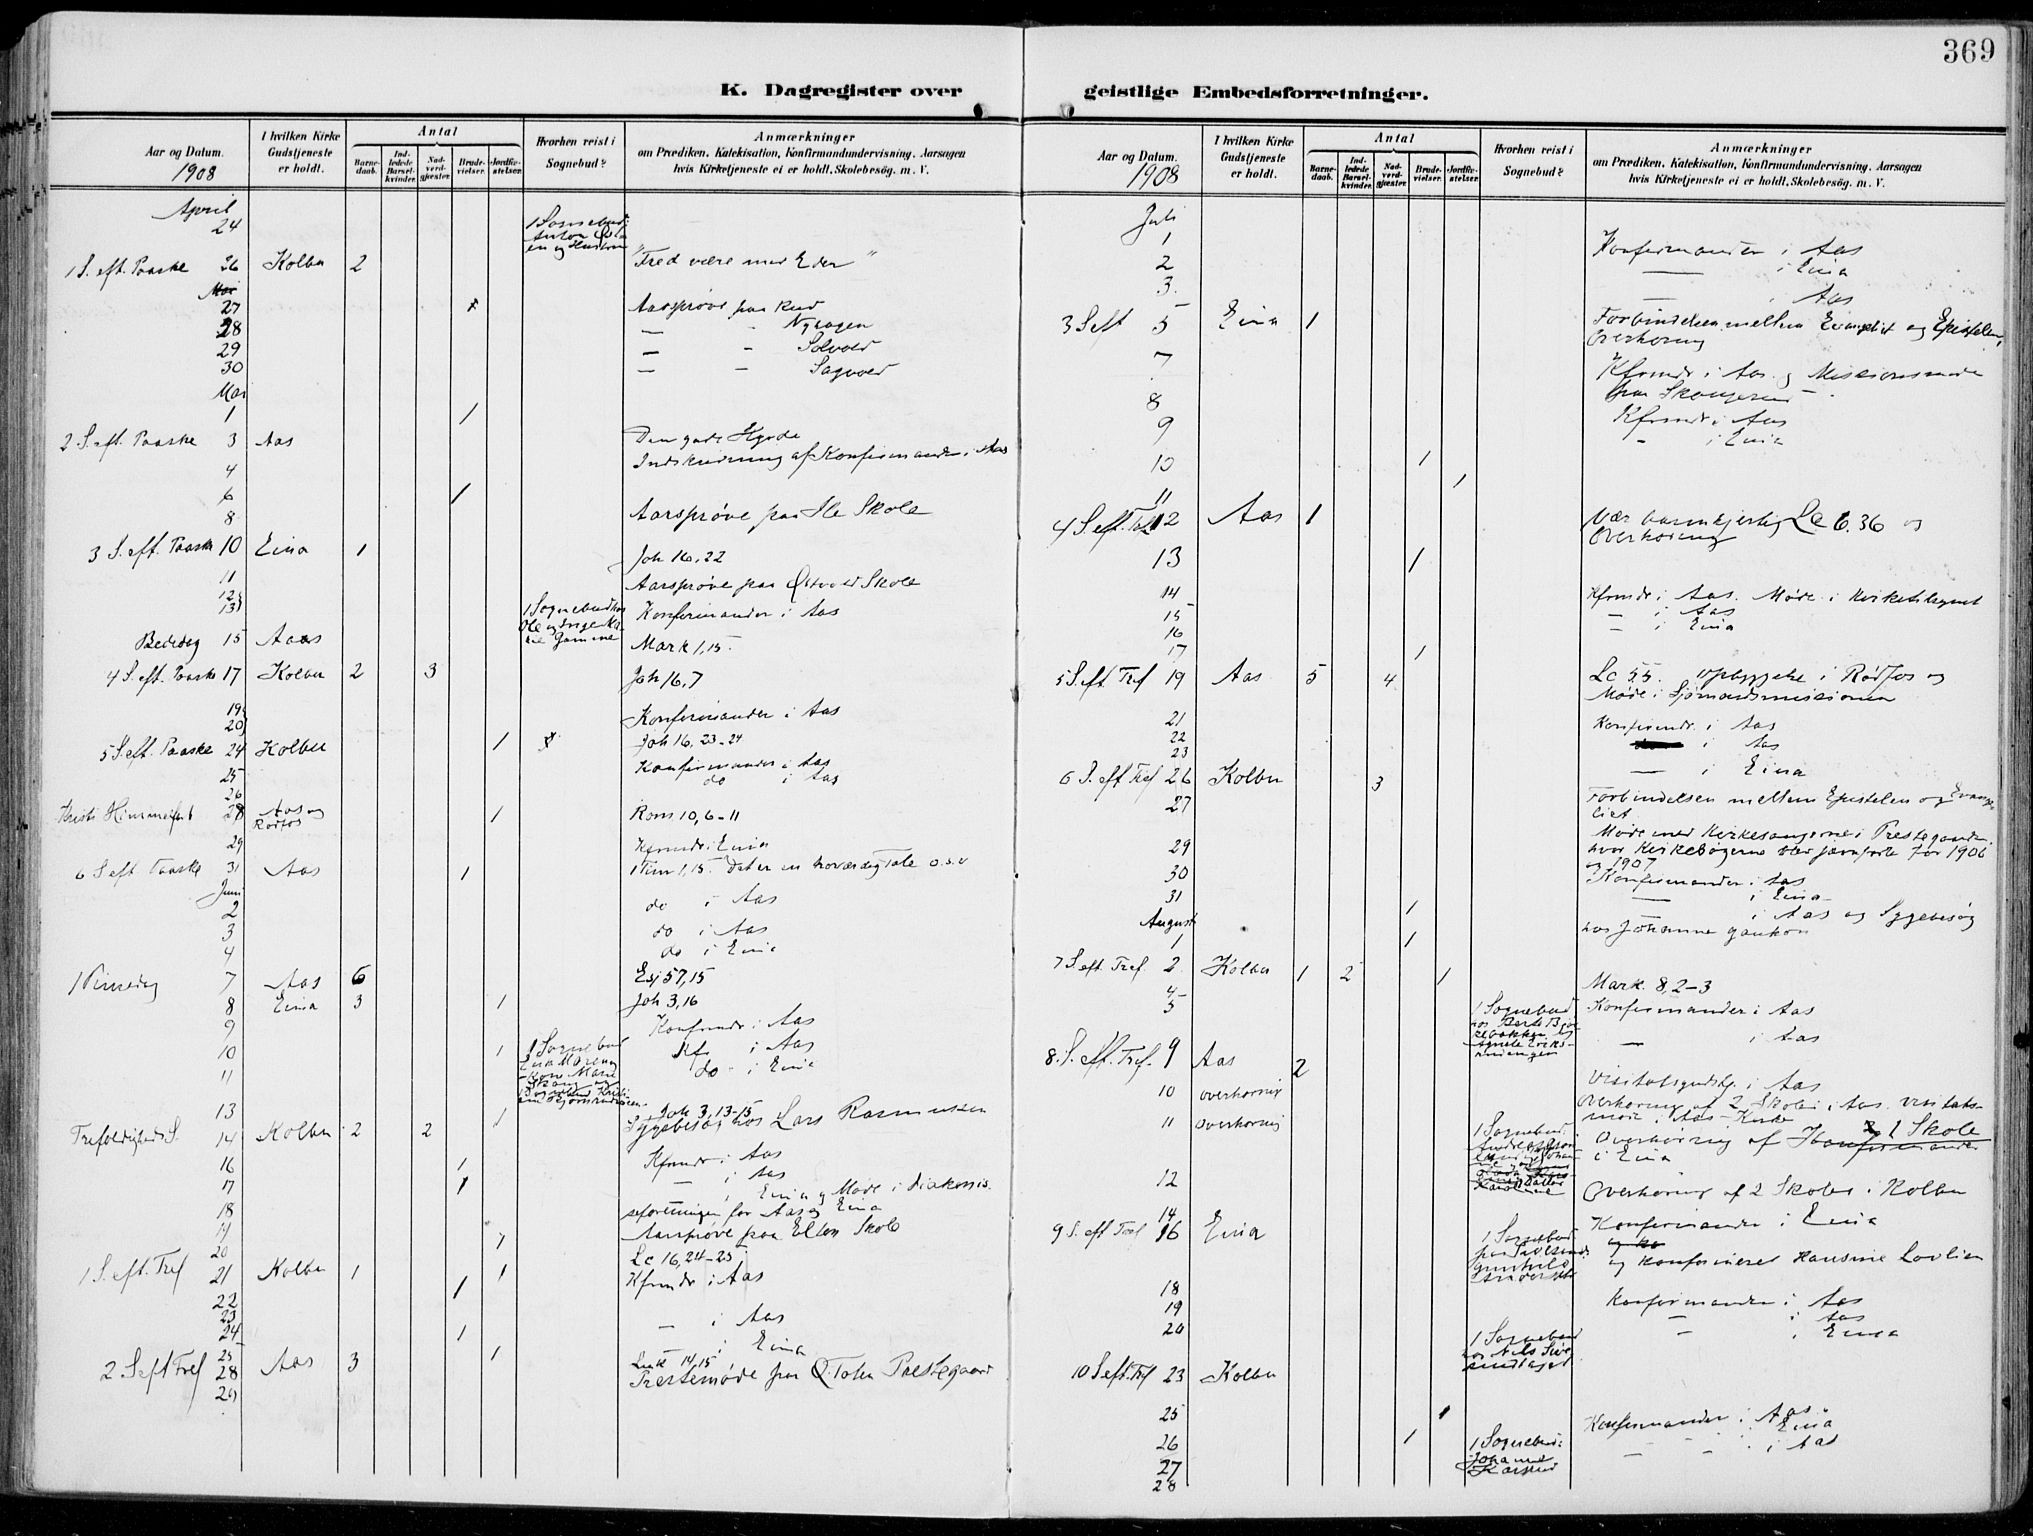 369
K. Dagregister over geistlige Embedsforretninger.
Aar og Datum.
1908
I hvilken Kirke Gudstjeneste er holdt.
Antal
Barne-daab.
Ind-ledede Barsel-kvinder.
Nad-verd-gjæster.
Brude-vielser.
Jordfæ-stelser.
Hvorhen reist i Sognebud?
Anmærkninger
om Prædiken, Katekisation, Konfirmandundervisning, Aarsagen
hvis Kirketjeneste ei er holdt, Skolebesøg. m. V.
April
24 1 Sognebud:
Anton
en og Hustru
1 S. eft. Paaske 26 Kolbu 2 "Fred være med Eder"
Mai
27 Aarsprøve paa Rud
28 — " Nyhagen
29 — - Solvold
30 — - Sagvold
Mai
1 1
2 S. eft. Paaske 3 Aas Den gode Hyrde
4 Indskrivning af Konfirmander i Aas
6 1
8 Aarsprøve paa Ile Skole
3 S. eft. Paaske 10 Eina 1 Joh 16,22
11 Aarsprøve paa Østvold Skole
12
13 1 Sognebud hos Konfirmander i Aas
Ole og Inge Ma-
rie Gamme
Bededag 15 Aas Mark 1,15.
4 S. eft. Paaske 17 Kolbu 2 3 Joh 16,7
19
20 Konfirmander i Aas
5 S eft. Paaske 24 Kolbu 1 Joh 16, 23-24
25 Konfirmander i Aas
26 do i Aas
Kristi Himmelfart 28 Aas og Rødfos 1 Rom 10,6-11
29 Kfrmdr i Eina
6 S eft Paaske 31 Aas 1 1 Tim 1,15. Det er en troværdig Tale o.s.v
Juni
2 do i Aas
3 do i Aas
4 do i Eina
1 Pinsedag 7 Aas 6 Esj 57,15
8 Eina 3 1 Joh 3,16
9 Konfrmdr i Aas
10 1 1 Sognebud Kfr i Aas
11 do i Eina
13 1 Joh 3,13-15
Sygebesøg hos Lars Rasmussen
Trefoldigheds S. 14 Kolbu 2 2
16 1 Kfrmdr i Aas
17 1 — i Aas
18 Eina og Møde i Diakonis-
seforeningen for Aas og Eina
19 Aarsprøve paa Elton Skole
20 1
1 S. eft. Tref 21 Kolbu 1 1 Lc 16, 24-25
22 1 Kfrmdr i Aas
23 — i Aas
24 1 i Eina
25
2 S eft Tref 28 Aas 3 1 Luk 14,15
29 Prestemøde paa Ø. Toten Prestegaard
Aar og Datum.
1908
I hvilken Kirke Gudstjeneste er holdt.
Antal
Barne-daab.
Ind-ledede Barsel-kvinder.
Nad-verd-gjæster.
Brude-vielser.
Jordfæ-stelser.
Hvorhen reist i Sognebud?
Anmærkninger
om Prædiken, Katekisation, Konfirmandundervisning, Aarsagen
hvis Kirketjeneste ei er holdt, Skolebesøg. m. V.
Juli
1 Konfirmander i Aas
2 — i Eina
3. — i Aas
3 S eft 5 Eina 1 Forbindelsen mellem Evangeliet og Epistelen,
Overhøring
7 Kfrmdr i Aas og Missionsmøde
paa
8 Kfrmdr i Aas
9 - i Eina
10 1
11 1
4 S eft. Tref 12 Aas 1 Vær barmhjertig Lc 6.36 og
Overhøring
13 1
14 Kfrmdr i Aas. Møde i Kirketilsynet
15 — i Aas
16 — i Eina
17 1
5 S. eft Tref 19 Aas 5 4 Lc 5.5. opbyggelse i Rødfos og
Møde i Sjømandsmissionen
21 Konfirmdr. i Aas
22 i Aas
23 — i Eina
6 S. eft Tref 26 Kolbu 3 Forbindelsen mellem Epistelen og Evange-
liet
27 Møde med Kirkesangerne i Prestegaarden,
hvor Kirkebøgerne blev jævnførte for 1906
og 1907
29 Konfirmander i Aas
30 — i Eina
31 1 — i Aas og Sygebesøg
hos Johanne
August
1 1
7 S. eft. Tref. 2 Kolbu 1 2 1 Mark. 8,2-3
4 1 Sognebud Konfirmander i Aas
5 — i Aas
8. S. eft. Tref. 9 Aas 2 Visitatsgudstj. i Aas
10 overhøring Overhøring af 2 Skoler i Aas. Visitats-
møde i Aas Kirke
11 overhøring 1 Sognebud Overhøring af 1 Skole
i Eina
12 Overhøring af 2 Skoler i Kolbu
14 Konfirmander i Eina
9 S. eft Tref 16 Eina 1 Sognebud
og konfirmeret Hansine Lovlien
18 Konfirmander i Aas
19 — i Aas
20 1 Sognebud — i Eina
hos Nils
10 S eft. Tref 23 Kolbu
25 1 Konfirmander i Aas
26 1 1 Sognebud: i Eina
27 Johanne — i Aas
28